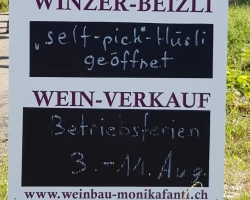 WINZER-BEIZLI
„self-pick"-Hüsli
geöffnet
WEIN-VERKAUF
Betriebsferien
3.-11. Aug.
www.weinbau-monikafanti.ch